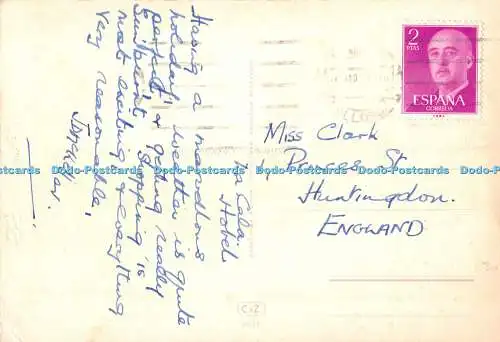 In Cala
Hotel
Having a marvellous
holiday, weather is quite
perfect & getting really
sunburnt. Shopping is
most exciting & everything
Very reasonable,
Miss Clark
4 Princes St
Huntingdon.
ENGLAND
2
PTAS
ESPAÑA
CORREOS
CyZ
Dodo-Postcards Dodo-Postcards Dodo-Postcards Dodo-Postcards Dodo-Postcards Dodo-Postcards